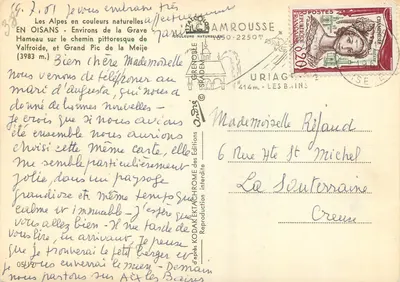 29.7.61 Je vous embrasse très
affectueusement
Les Alpes en couleurs naturelles
EN OISANS - Environs de la Grave
Hameau sur le chemin pittoresque de
Valfroide, et Grand Pic de la Meije
(3983 m)
Bien chère Mademoiselle
Nous venons de téléphoner au
mari d'Augusta, qui nous a
donné de bonnes nouvelles -
Je crois que si nous avions
été ensemble nous aurions
choisi cette même carte, elle
me semble particulièrement
jolie, dans un paysage
grandiose et même temps que
calme et immuable - J'espère que
vous allez bien - Il me tarde de
vous lire, en arrivant, Je pense
que je trouverai le petit berger et
je vous enverrai le mien - Demain
nous partons sur Aix les Bains
d'après KODAK EKTACHROME des Editions
Reproduction interdite
GRENOBLE
CHAMROUSSE
1650-2250m
URIAGE
414m - LES BAINS
0,20
Mademoiselle Réjaud
6 Rue Hte St Michel
La Souterraine
Creuse